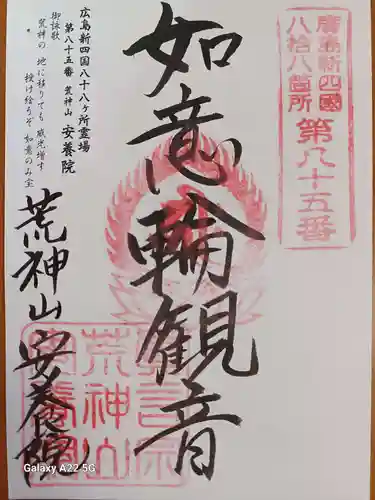 廣島新四國
八拾八箇所
第八十五番
如意輪観音
広島新四国八十八ヶ所霊場
第八十五番 荒神山 安養院
御詠歌
荒神の 地に積りても 威光増す
授け給うぞ 如意のみ宝
荒神山 安養院
真言宗
荒神山
安養院
Galaxy A22 5G